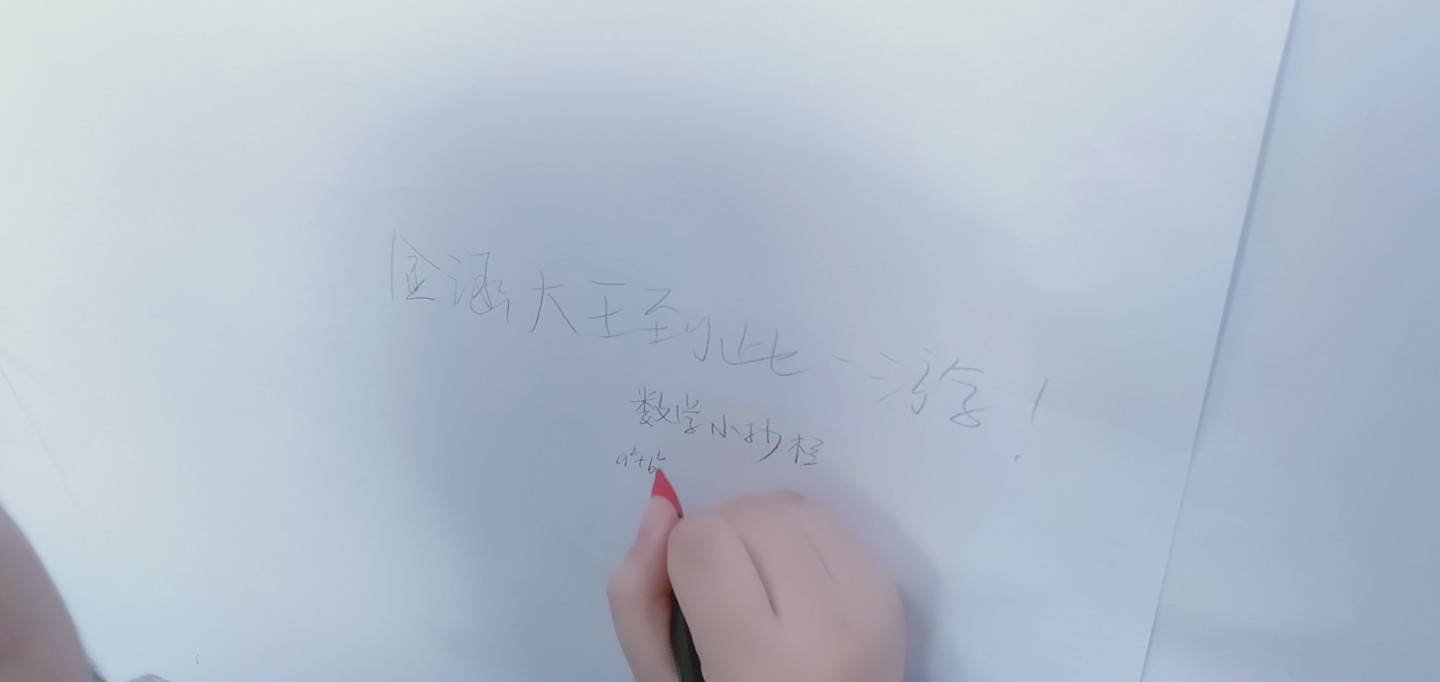 涵大王到此一游!
数学小抄
a²+b²